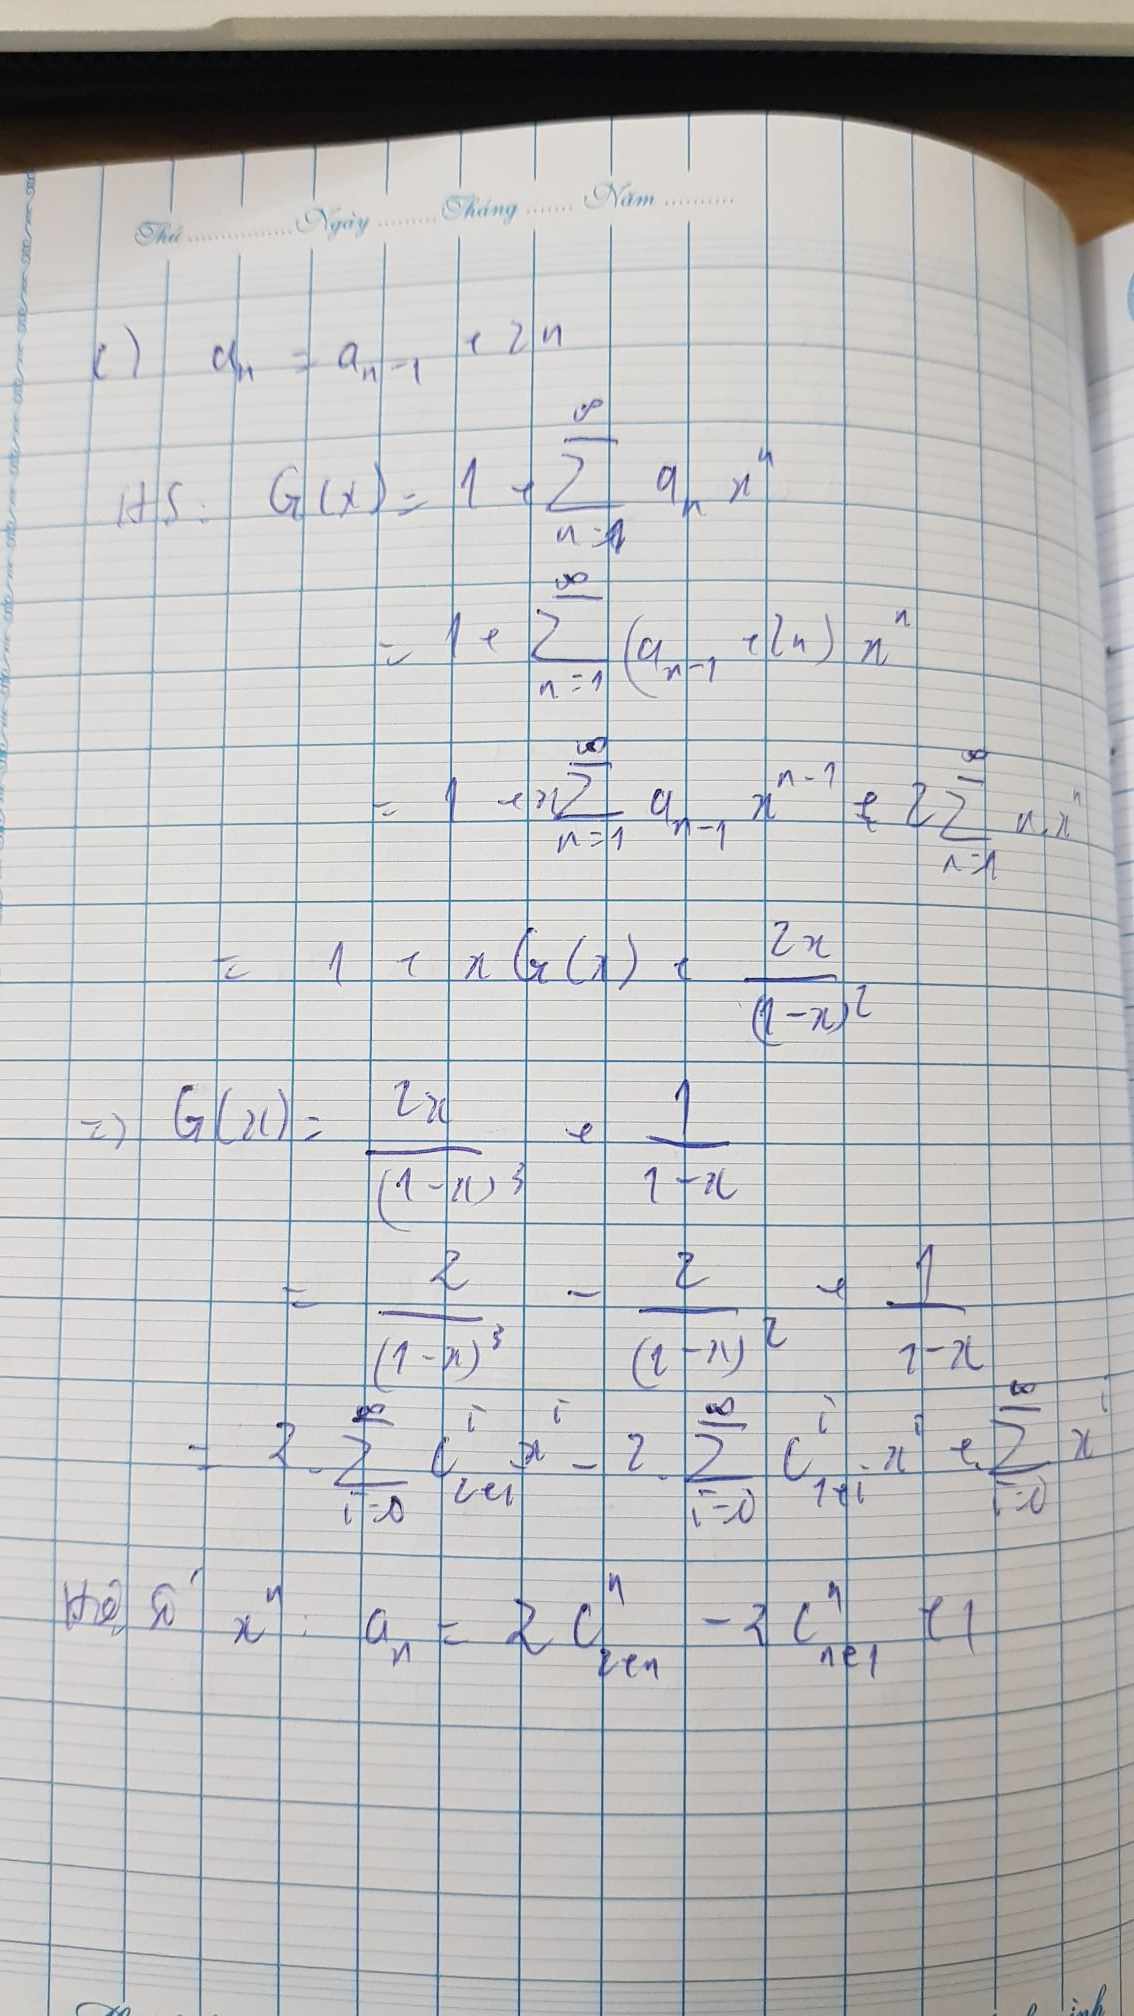 Thứ ................ Ngày ......... Tháng ....... Năm ..........
c) a_n = a_{n-1} + 2n
HS: G(x) = 1 + ∑_{n=1}^{∞} a_n x^n
= 1 + ∑_{n=1}^{∞} (a_{n-1} + 2n) x^n
= 1 + x∑_{n=1}^{∞} a_{n-1} x^{n-1} + 2∑_{n=1}^{∞} n.x^n
= 1 + x G(x) + 2x/(1-x)^2
=> G(x) = 2x/(1-x)^3 + 1/(1-x)
= 2/(1-x)^3 - 2/(1-x)^2 + 1/(1-x)
= 2.∑_{i=0}^{∞} C_{2+i}^{i} x^i - 2.∑_{i=0}^{∞} C_{1+i}^{i}.x^i + ∑_{i=0}^{∞} x^i
Hệ số x^n : a_n = 2C_{2+n}^{n} - 2C_{n+1}^{n} + 1